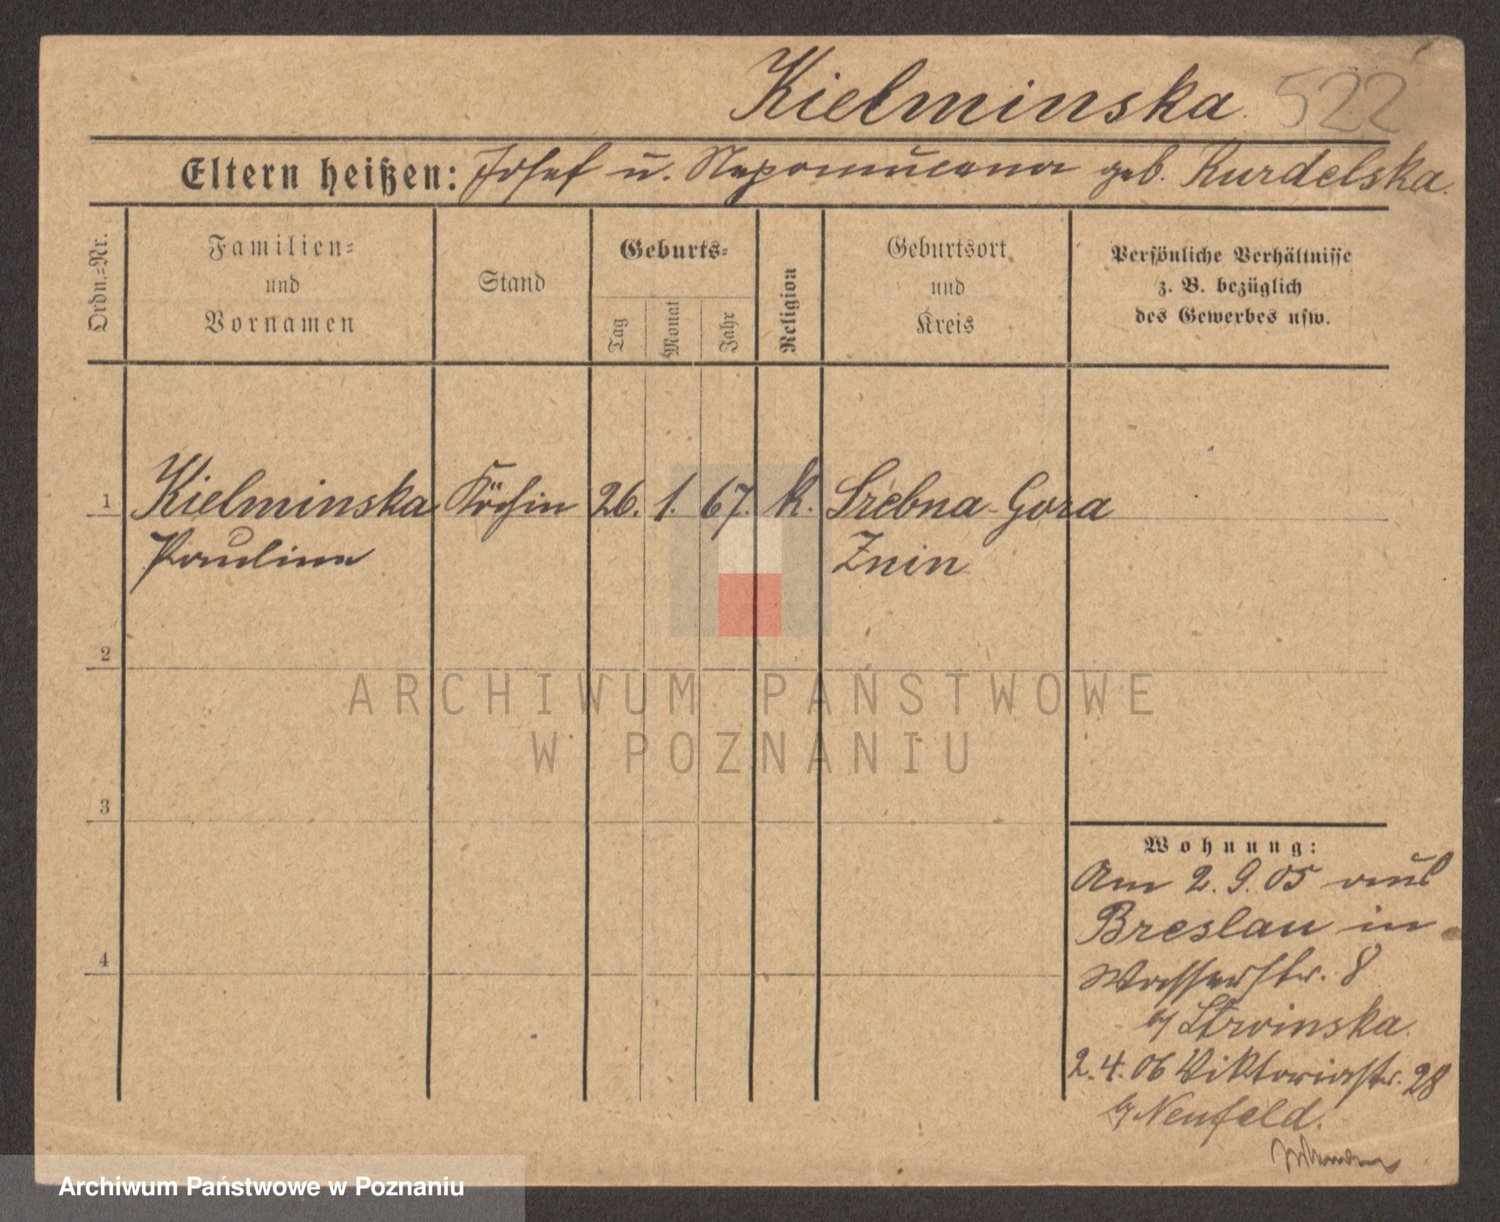 Kielminska. 522
Eltern heißen: Josef u. Nepomucena geb. Kurdelska.
Ordn.=Nr.
Familien=
und
Vornamen
Stand
Geburts=
Tag
Monat
Jahr
Religion
Geburtsort
und
Kreis
Persönliche Verhältnisse
z. B. bezüglich
des Gewerbes usw.
1 Kielminska Köchin 26. 1. 67. k. Srebna-Gora
Pauline Znin
2
ARCHIWUM PAŃSTWOWE
W POZNANIU
3
Wohnung:
Am 2.9.05 aus
Breslau in
4
Wasserstr. 8
b/ Strwinska.
2.4.06 Viktoriastr. 28
b/ Neufeld.
Archiwum Państwowe w Poznaniu